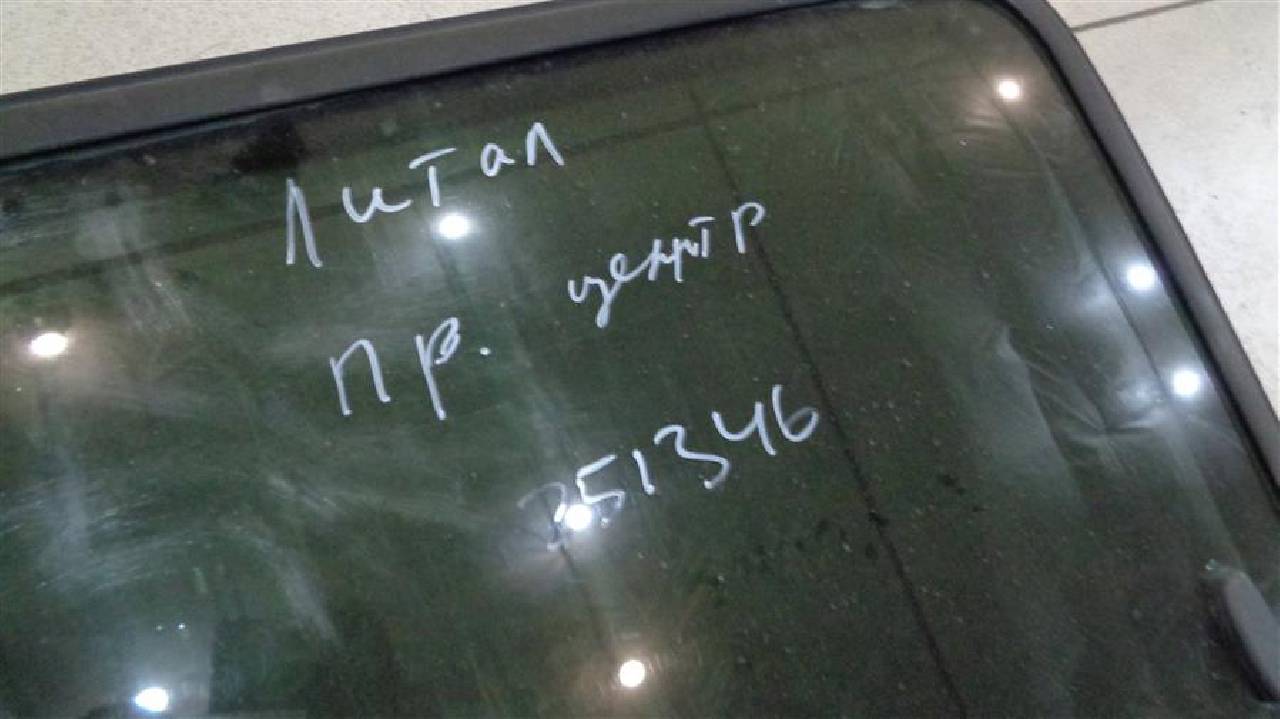 Литал
пр. центр
351346